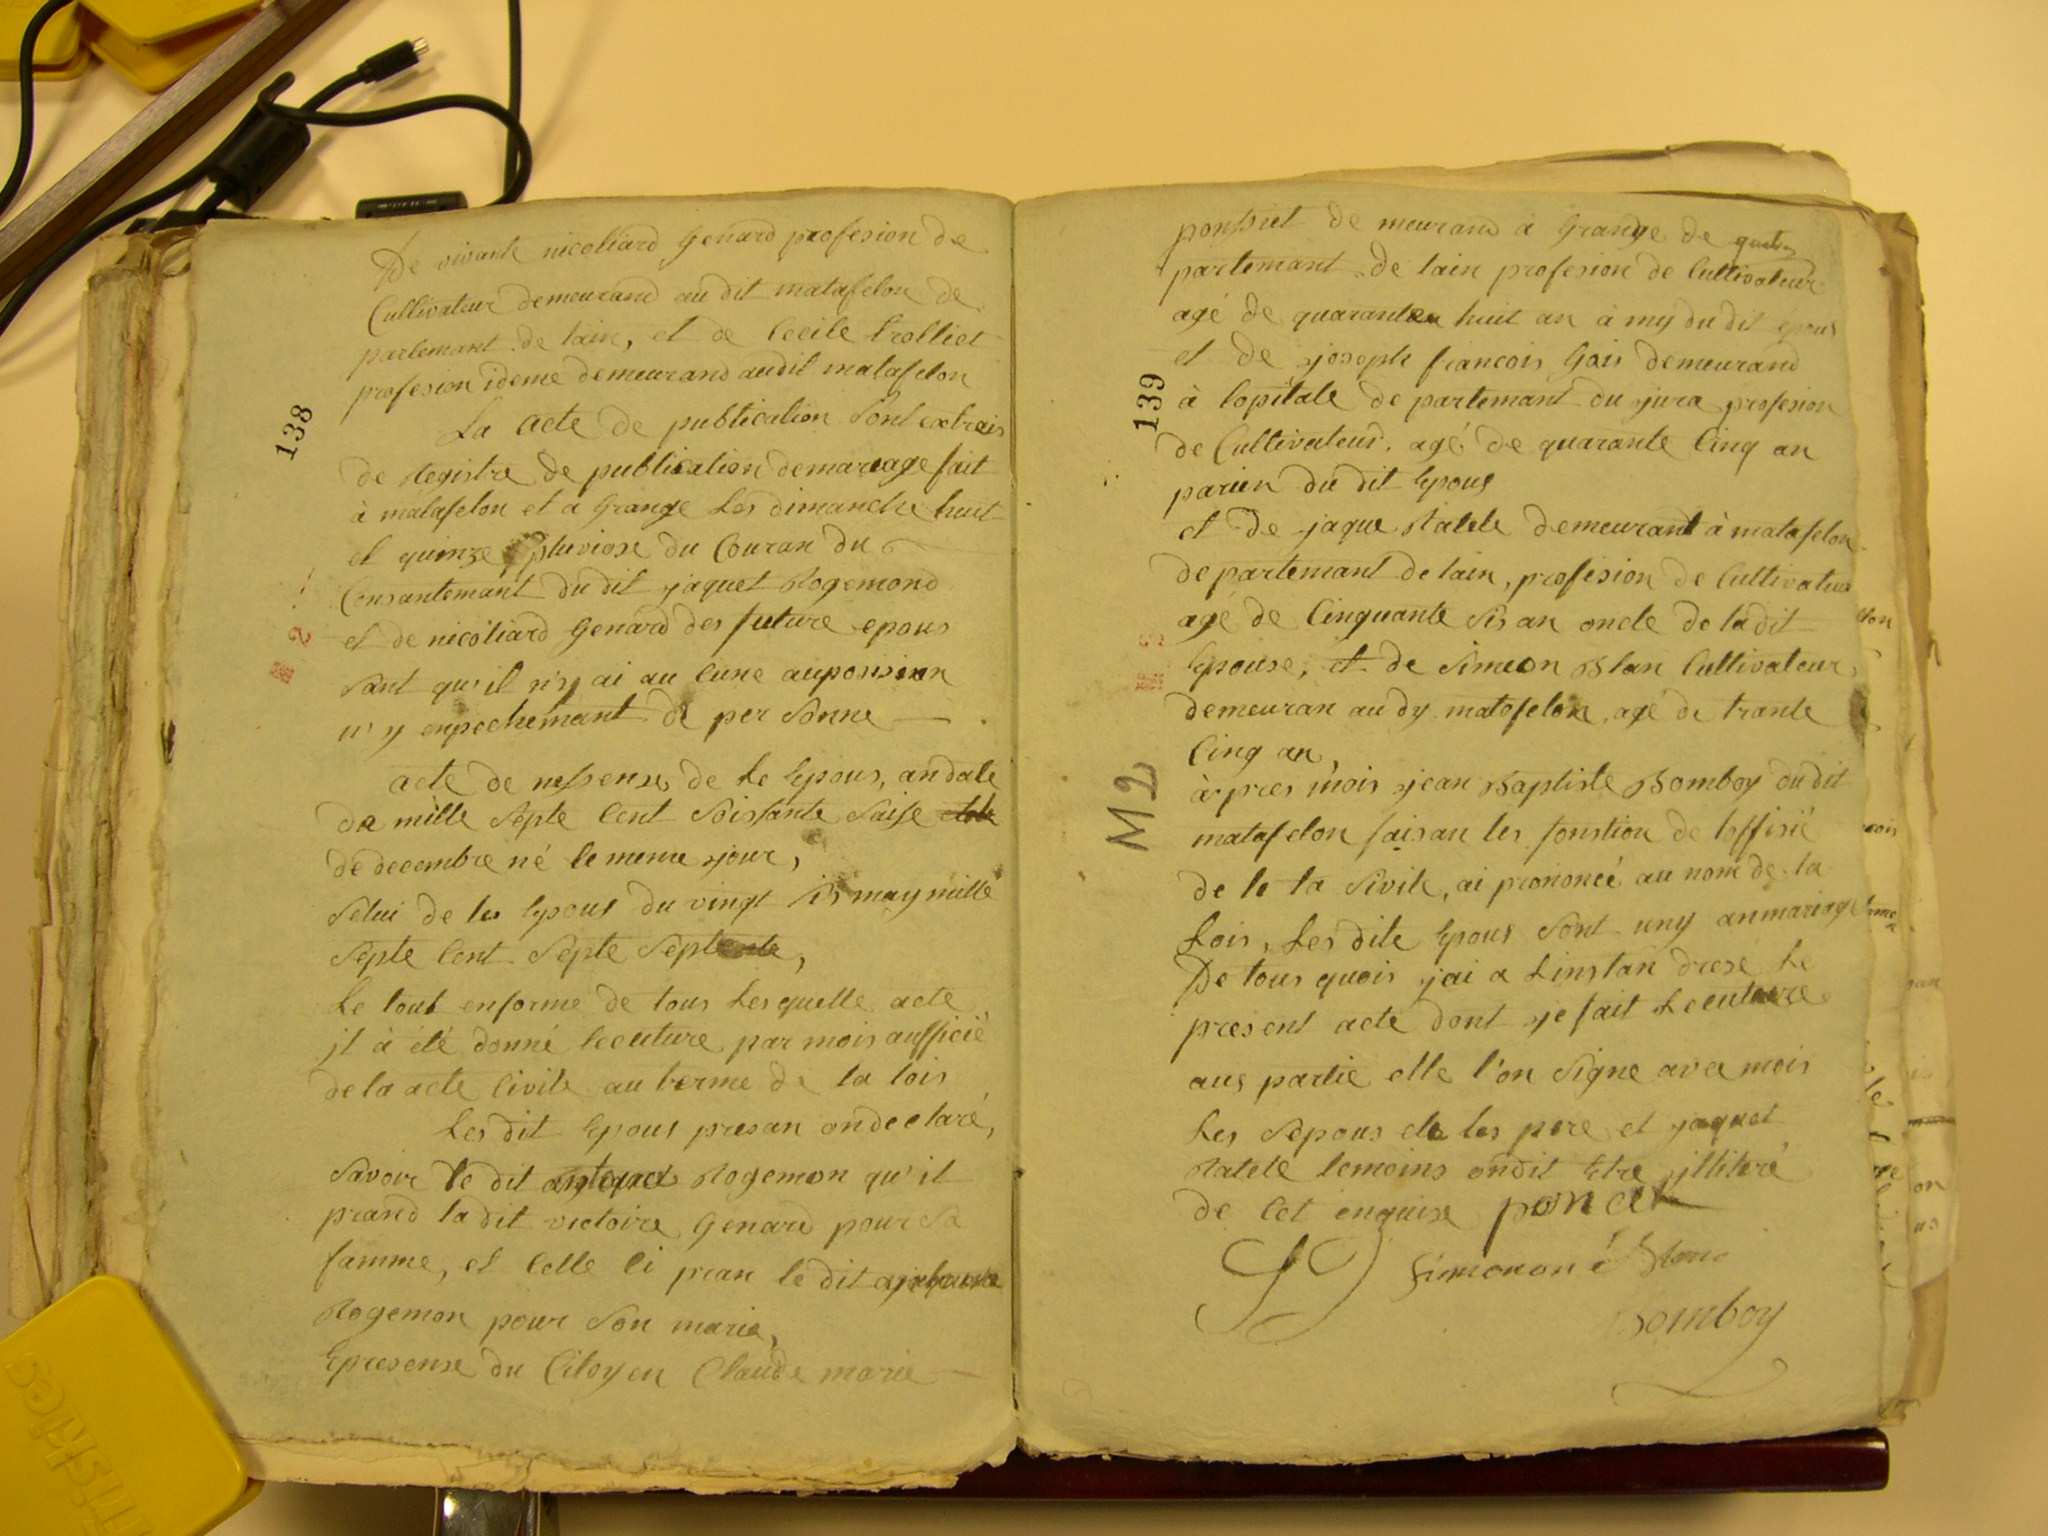 138
De vivante nicoliard Genard profesion de
Cultivateur demeurand au dit matafelon de
partemant de lain, et de Cecile trolliet
profesion ideme demeurand audit matafelon
La acte de publication Sont extrais
de Registre de publication demariage fait
à matafelon et a Grange Les dimanche huit
et quinze pluviose du Couran du
Consantemant du dit jaquet Rogemond
et de nicoliard Genard des future epous
Sant qu'il n'y ai au Cune auposision
n'y enpechemant de per Sonne
acte de nessense de Le Epous, an date
de mille Septe Cent Soissante Saise
de decembre né le meme jour,
Selui de les Epous du vingt sis may mille
Septe Cent Septe
Le tout enforme de tous Lesquelle acte
il à été donné lecuture par mois aufficié
de la acte Civile au terme de la lois
Les dit Epous presan ondeclaré,
Savoir le dit Rogemon qu'il
prand la dit victoire Genard pour Sa
famme, et Celle Ci pran le dit
Rogemon pour Son marie,
Epresense du Citoyen Claude marie
139
M2
demeurand à Grange de
partemant de lain profesion de Cultivateur
agé de quarante huit an à my du dit epous
et de joseph francois Gois demeurand
à lopitale de partemant du jura profesion
de Cultivateur, agé de quarante Cinq an
parien du dit Epous
et de jaque Ratele demeurant à matafelon
departemant de lain, profesion de Cultivateur
agé de Cinquante Sis an oncle de ladit
Epouse, et de Simeon Blan Cultivateur
demeuran au dy matafelon, agé de trante
Cinq an,
àpres mois jean Baptiste Bomboy du dit
matafelon faisan les fonstion de loffisié
de le ta Sivile, ai prononcé au nom de la
Lois, Les dite Epous Sont uny anmariage
De tous quois jai a Linstan drese Le
present acte dont je fait Lecuture
aus partie elle l'on Signe avec mois
Les Sepous de les pere et jaquet
Ratele temoins ondit Etre illiteré
de Cet enquise poncet
Bomboy